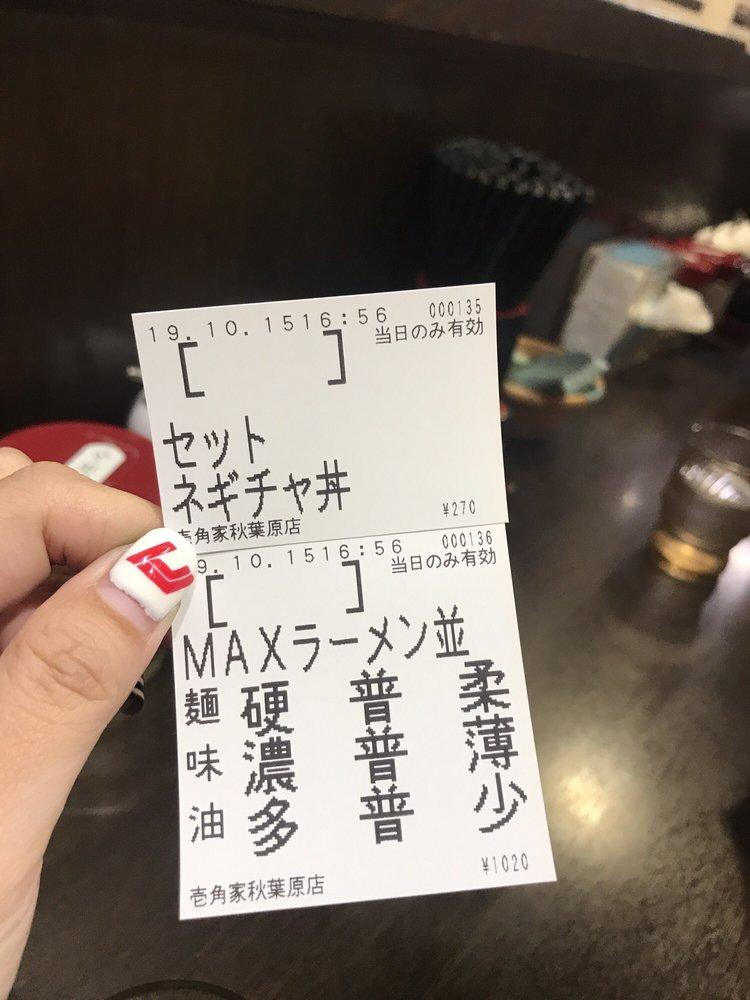 19.10.1516:56 000135
当日のみ有効
[ ]
セット
ネギチャ丼
¥270
壱角家秋葉原店
9.10.1516:56 000136
当日のみ有効
[ ]
MAXラーメン並
麺 硬 普 柔
味 濃 普 薄
油 多 普 少
¥1020
壱角家秋葉原店